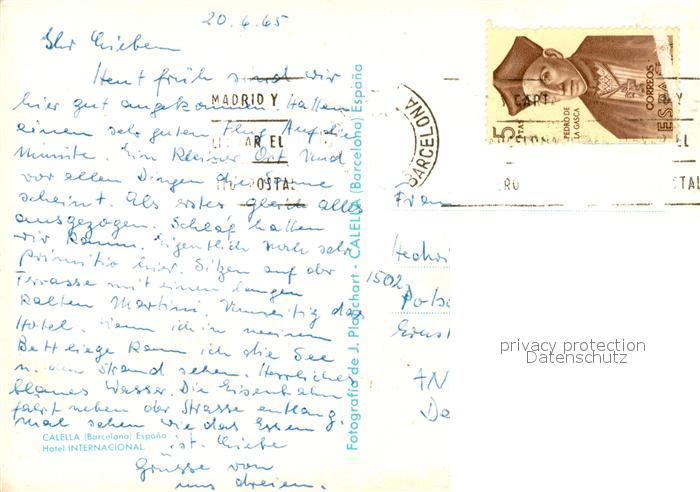 20.6.65
Ihr Lieben
Heut früh sind wir
hier gut angekommen. Hatten
einen sehr guten Flug. Auf die
Minute. Ein kleiner Ort. Und
vor allen Dingen die Sonne
scheint. Als erstes gleich alles
ausgezogen. Schlaf hatten
wir kaum. Eigentlich noch sehr
primitiv hier. Sitzen auf der
Terrasse mit einem langen
kalten Martini. Unmöglich das
Hotel. Wenn ich in meinem
Bett liege kann ich die See
u. den Strand sehen. Herrliches
blaues Wasser. Die Eisenbahn
fährt neben der Strasse entlang.
Mal sehen wie das Essen
ist. Liebe
Grüsse von
uns dreien.
CALELLA (Barcelona) España
Hotel INTERNACIONAL
Fotografía de J. Planchart - CALELLA (Barcelona) España
MADRID Y
AR EL
POSTAL
BARCELONA
5
PTAS
PEDRO DE
LA GASCA
CORREOS
ESPAÑA
Frau
Hedwi
1502
Pots
Ernst
AN
De
privacy protection
Datenschutz